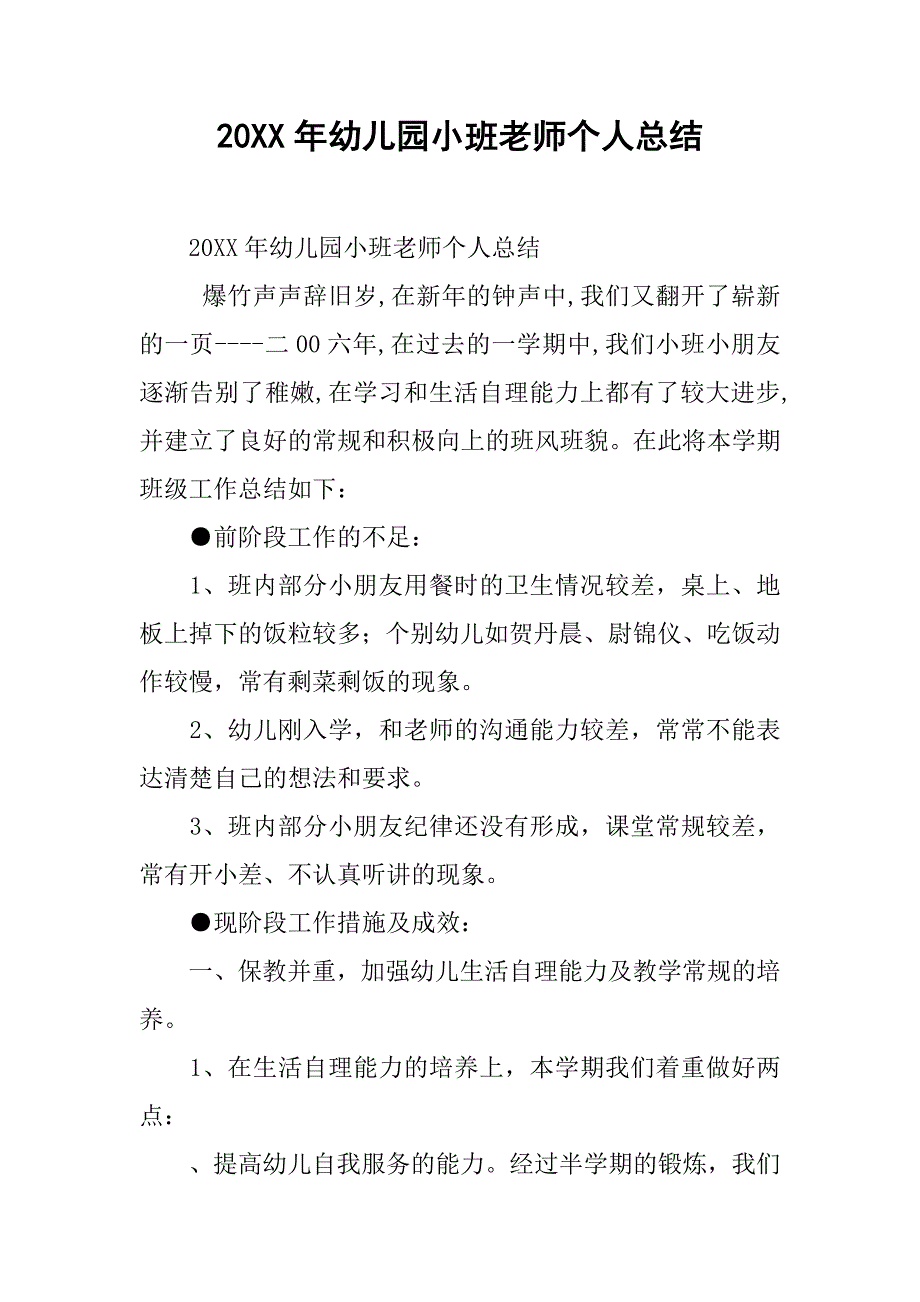 20XX年幼儿园小班老师个人总结
20XX年幼儿园小班老师个人总结
爆竹声声辞旧岁,在新年的钟声中,我们又翻开了崭新
的一页----二00六年,在过去的一学期中,我们小班小朋友
逐渐告别了稚嫩,在学习和生活自理能力上都有了较大进步,
并建立了良好的常规和积极向上的班风班貌。在此将本学期
班级工作总结如下：
●前阶段工作的不足：
1、班内部分小朋友用餐时的卫生情况较差，桌上、地
板上掉下的饭粒较多；个别幼儿如贺丹晨、尉锦仪、吃饭动
作较慢，常有剩菜剩饭的现象。
2、幼儿刚入学，和老师的沟通能力较差，常常不能表
达清楚自己的想法和要求。
3、班内部分小朋友纪律还没有形成，课堂常规较差，
常有开小差、不认真听讲的现象。
●现阶段工作措施及成效：
一、保教并重，加强幼儿生活自理能力及教学常规的培
养。
1、在生活自理能力的培养上，本学期我们着重做好两
点：
、提高幼儿自我服务的能力。经过半学期的锻炼，我们